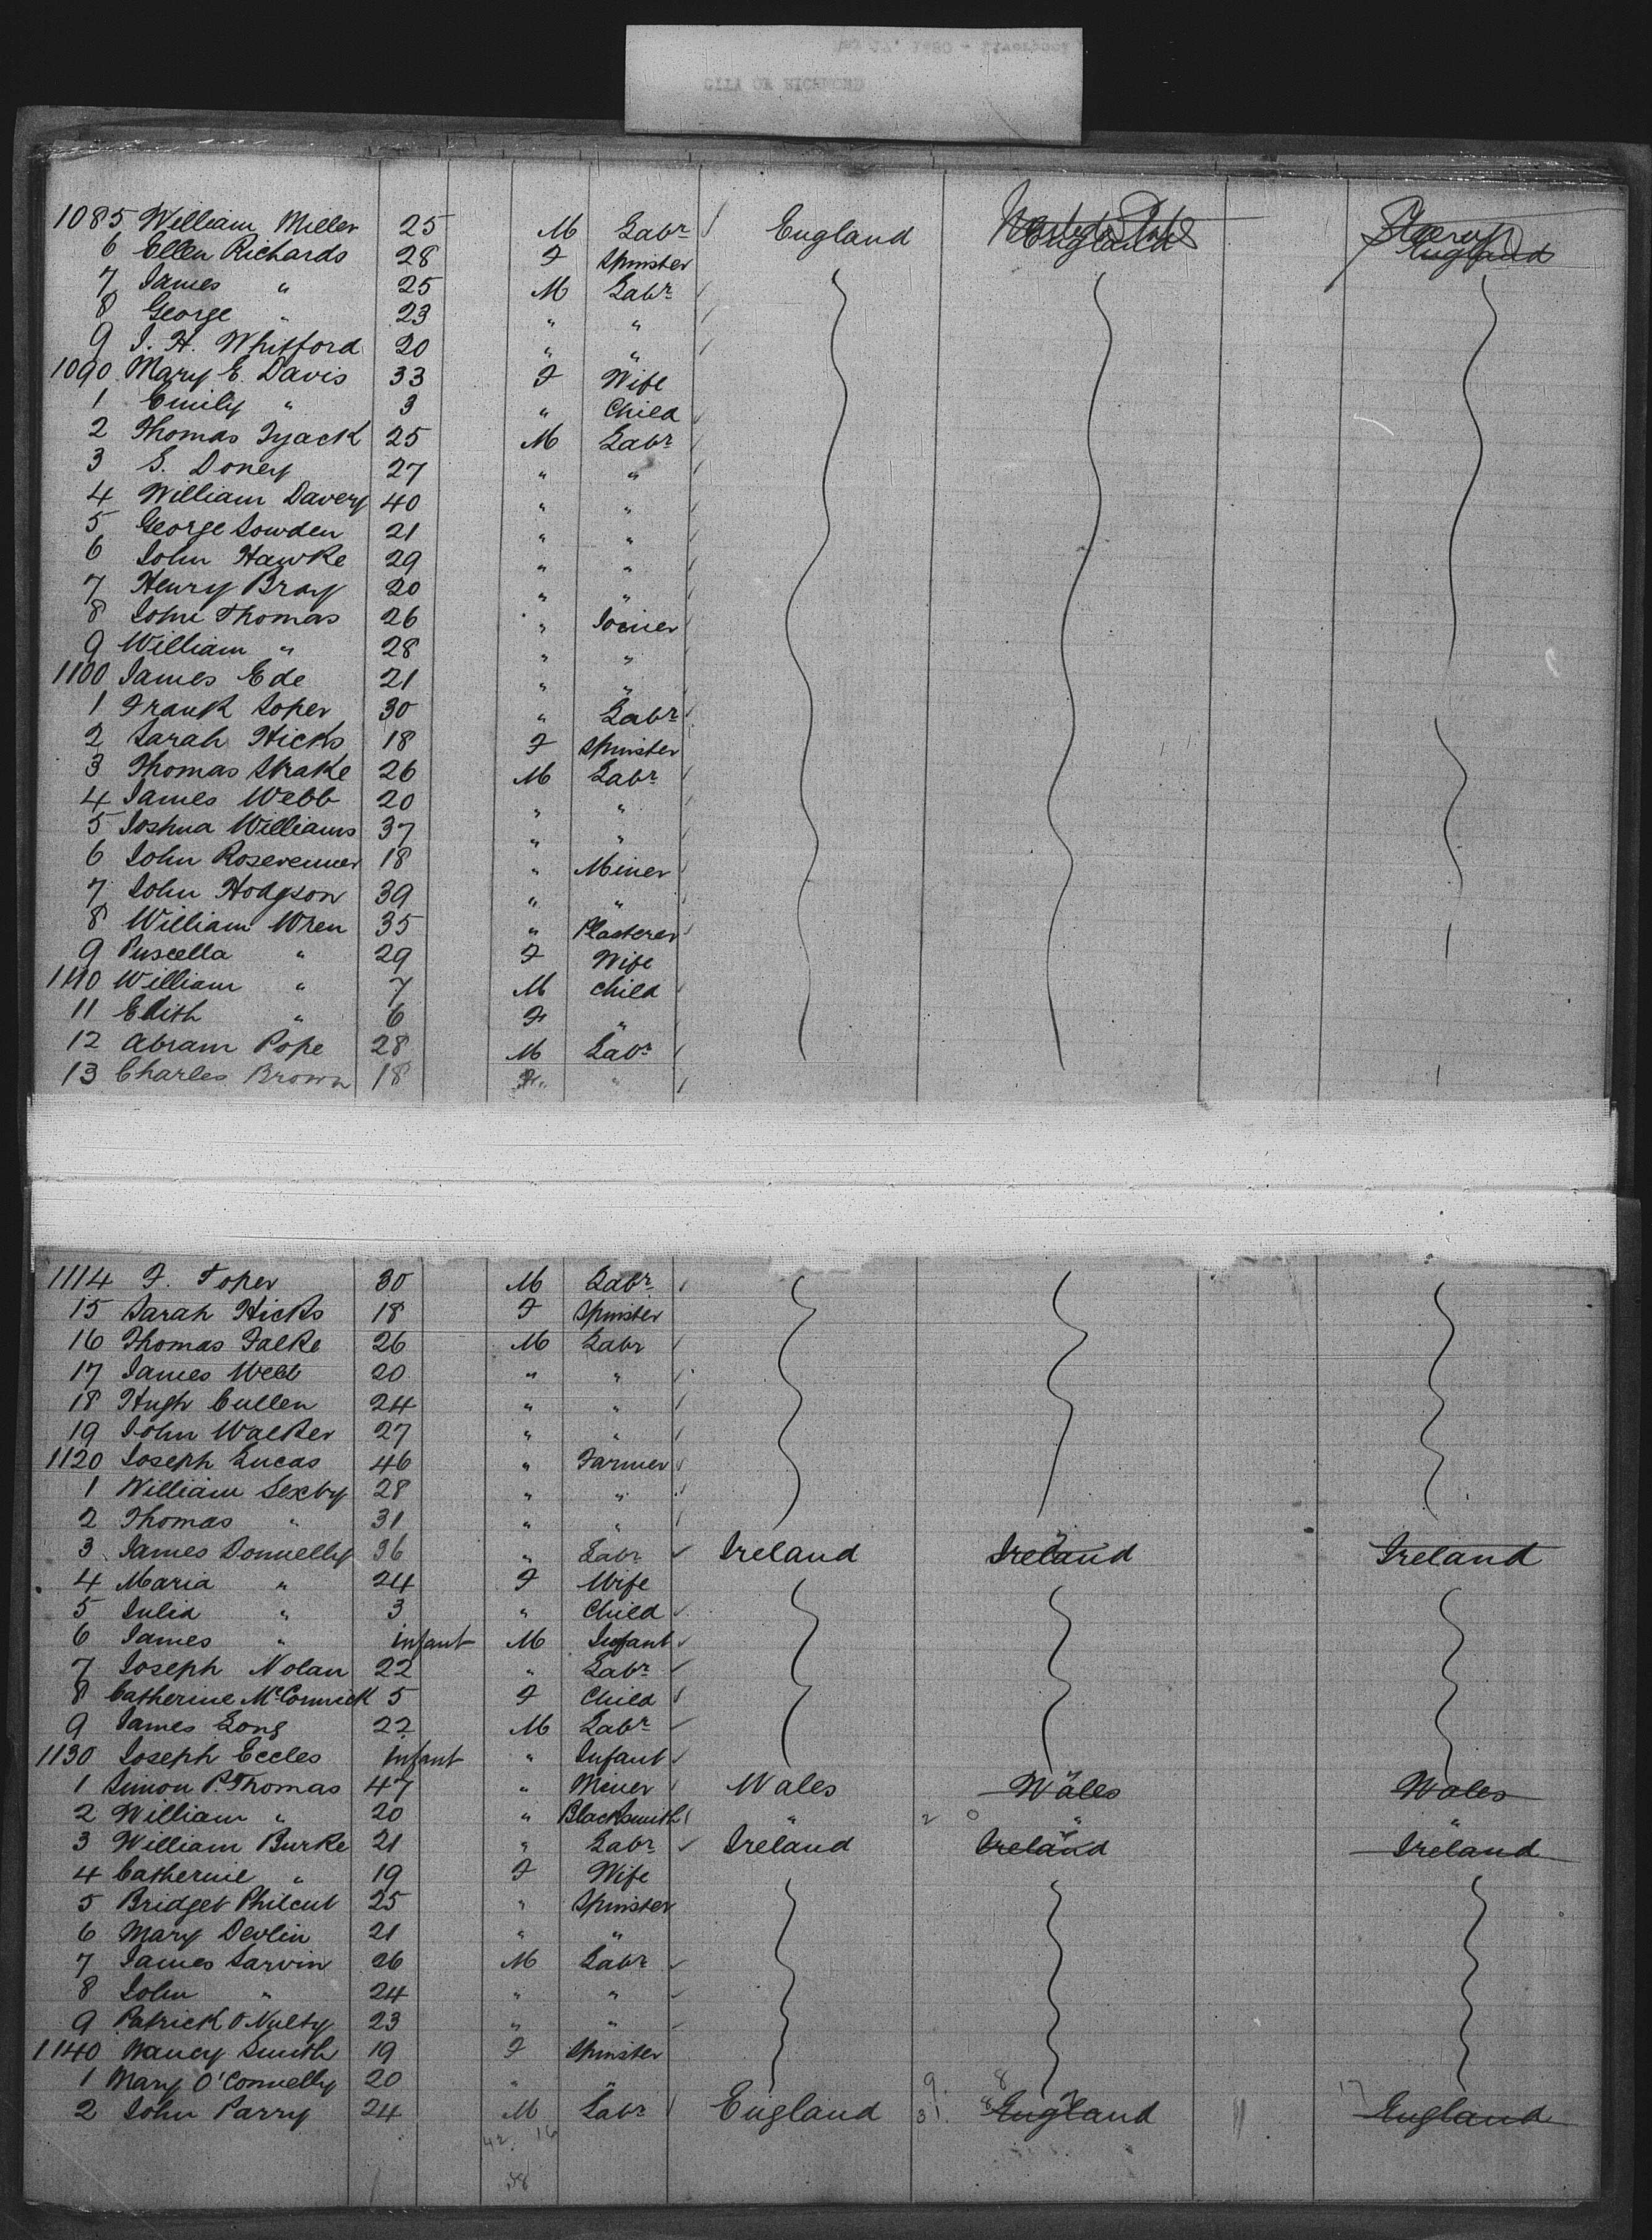 1880 - Liverpool
CITY OF RICHMOND
1085 William Miller 25 M Labr England United States Steerage England
6 Ellen Richards 28 F Spinster
7 James " 25 M Labr
8 George " 23 " "
9 J. H. Whitford 20 " "
1090 Mary E. Davis 33 F Wife
1 Emily " 3 " Child
2 Thomas Tyack 25 M Labr
3 S. Doney 27 " "
4 William Davey 40 " "
5 George Sowden 21 " "
6 John Hawke 29 " "
7 Henry Bray 20 " "
8 John Thomas 26 " Joiner
9 William " 28 " "
1100 James Ede 21 " "
1 Frank Soper 30 " Labr
2 Sarah Hicks 18 F Spinster
3 Thomas Skake 26 M Labr
4 James Webb 20 " "
5 Joshua Williams 37 " "
6 John 18 " Miner
7 John Hodgson 39 " "
8 William Wren 35 " Plasterer
9 Puscella " 29 F Wife
1110 William " 7 M Child
11 Edith " 6 F "
12 Abram Pope 28 M Labr
13 Charles Brown 18 "
1114 F. Toper 30 M Labr
15 Sarah Hicks 18 F Spinster
16 Thomas Falke 26 M Labr
17 James Webb 20 " "
18 Hugh Cullen 24 " "
19 John Walker 27 " "
1120 Joseph Lucas 46 " Farmer
1 William Sexby 28 " "
2 Thomas " 31 " "
3 James Donnelly 36 " Labr Ireland Ireland Ireland
4 Maria " 24 F Wife
5 Julia " 3 " Child
6 James " infant M Infant
7 Joseph Nolan 22 " Labr
8 Catherine McConnick 5 F Child
9 James Long 22 M Labr
1130 Joseph Eccles infant " Infant
1 Simon P. Thomas 47 " Miner Wales Wales Wales
2 William " 20 " Blacksmith " 2 0 " "
3 William Burke 21 " Labr Ireland Ireland Ireland
4 Catherine " 19 F Wife
5 Bridget Philcut 25 " Spinster
6 Mary Devlin 21 " "
7 James Sarvin 26 M Labr
8 John " 24 " "
9 Patrick O Nulty 23 " "
1140 Nancy Smith 19 F Spinster
1 Mary O'Connelly 20 " " 9. 8
2 John Parry 24 M Labr England 31. England 17 England
42. 16
58